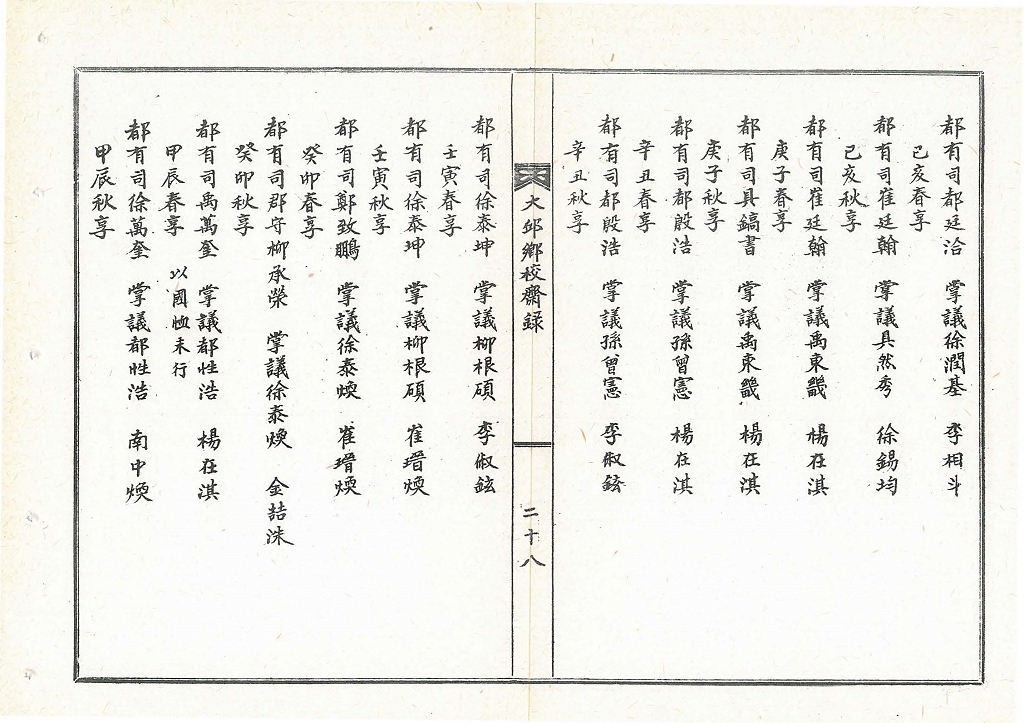 都有司都廷洽 掌議徐潤基 李相斗
己亥春享
都有司崔廷翰 掌議具然秀 徐錫均
己亥秋享
都有司崔廷翰 掌議禹東畿 楊在淇
庚子春享
都有司具鎬書 掌議禹東畿 楊在淇
庚子秋享
都有司都殷浩 掌議孫曾憲 楊在淇
辛丑春享
都有司都殷浩 掌議孫曾憲 李俶鉉
辛丑秋享
大邱鄉校齋録
二十八
都有司徐泰坤 掌議柳根碩 李俶鉉
壬寅春享
都有司徐泰坤 掌議柳根碩 崔瑨煥
壬寅秋享
都有司鄭致鵬 掌議徐泰煥 崔瑨煥
癸卯春享
都有司郡守柳承榮 掌議徐泰煥 金喆洙
癸卯秋享
都有司禹萬奎 掌議都性浩 楊在淇
甲辰春享 以國恤未行
都有司徐萬奎 掌議都性浩 南中煥
甲辰秋享